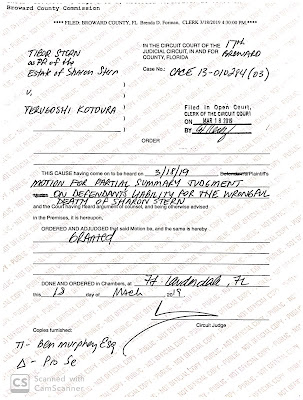 Broward County Commission
**** FILED: BROWARD COUNTY, FL Brenda D. Forman, CLERK 3/18/2019 4:30:00 PM.****
TIBOR STERN
as PR of the
Estate of Sharon Stern
v.
TERUGOSHI KOTOURA
IN THE CIRCUIT COURT OF THE 17th
JUDICIAL CIRCUIT, IN AND FOR BROWARD
COUNTY, FLORIDA
Case No.: CACE 13-010274 (03)
Filed In Open Court,
CLERK OF THE CIRCUIT COURT
ON MAR 18 2019
BY
ORDER
THIS CAUSE having come on to be heard on 3/18/19 Defendant's/Plaintiff's
MOTION FOR PARTIAL SUMMARY JUDGMENT
ON DEFENDANTS LIABILITY FOR THE WRONGFUL
DEATH OF SHARON STERN
and the Court having heard argument of counsel, and being otherwise advised
in the Premises, it is hereupon,
ORDERED AND ADJUDGED that said Motion be, and the same is hereby
GRANTED
DONE AND ORDERED in Chambers, at Ft Lauderdale, FL
this 18 day of March 2019.
Circuit Judge
Copies furnished:
TI- Ben Murphey Esq
Δ - Pro Se
CS Scanned with
CamScanner